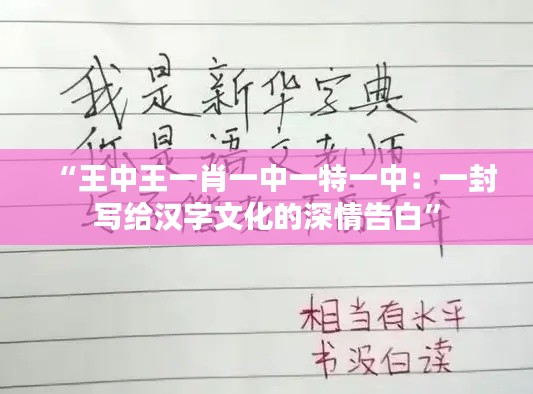 我是新华字典
你是语文老师
“王中王一肖一中一特一中：一封
写给汉字文化的深情告白”
相当有水平
书没白读